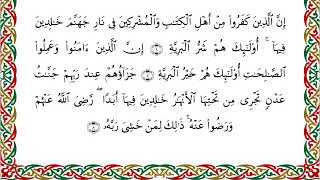 إِنَّ ٱلَّذِينَ كَفَرُوا۟ مِنْ أَهْلِ ٱلْكِتَـٰبِ وَٱلْمُشْرِكِينَ فِى نَارِ جَهَنَّمَ خَـٰلِدِينَ
فِيهَآ ۚ أُو۟لَـٰٓئِكَ هُمْ شَرُّ ٱلْبَرِيَّةِ ۝ إِنَّ ٱلَّذِينَ ءَامَنُوا۟ وَعَمِلُوا۟
ٱلصَّـٰلِحَـٰتِ أُو۟لَـٰٓئِكَ هُمْ خَيْرُ ٱلْبَرِيَّةِ ۝ جَزَآؤُهُمْ عِندَ رَبِّهِمْ جَنَّـٰتُ
عَدْنٍ تَجْرِى مِن تَحْتِهَا ٱلْأَنْهَـٰرُ خَـٰلِدِينَ فِيهَآ أَبَدًا ۖ رَّضِىَ ٱللَّهُ عَنْهُمْ
وَرَضُوا۟ عَنْهُ ۚ ذَٰلِكَ لِمَنْ خَشِىَ رَبَّهُۥ ۝